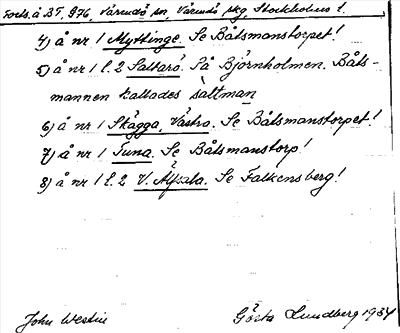 Forts. å BT, 976, Värmdö sn, Värmdö skg, Stockholms l.
4) å nr 1 Myttinge. Se Båtsmanstorpet!
5) å nr 1 l. 2 Saltarö. Så Björnholmen. Båts-
mannen kallades sàltman
6) å nr 1 Skägga, Västra. Se Båtsmanstorpet!
7) å nr 1 Tuna. Se Båtsmanstorp!
8) å nr 1 l. 2 V. Älfsala. Se Falkensberg!
John Westin Gösta Lundberg 1934